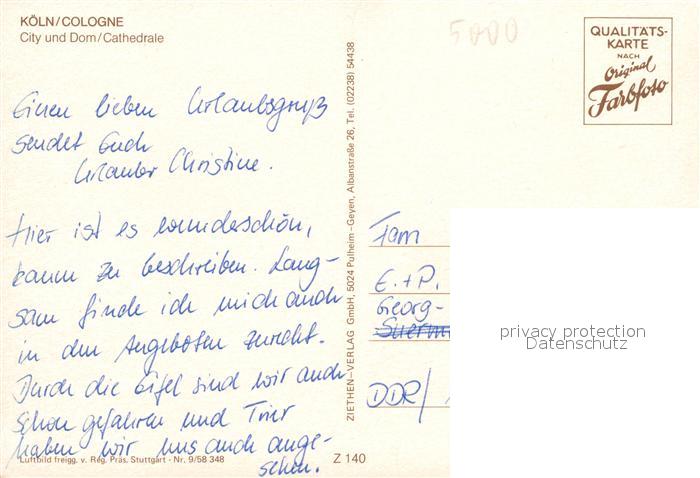 KÖLN/COLOGNE
City und Dom/Cathedrale
5000
QUALITÄTS-
KARTE
NACH
Original
Farbfoto
Einen lieben Urlaubsgruß
sendet Euch
Urlauber Christine.
Hier ist es wunderschön,
kaum zu beschreiben. Lang-
sam finde ich mich auch
in den Angeboten zurecht.
Durch die Eifel sind wir auch
schon gefahren und Trier
haben wir uns auch ange-
sehen.
Luftbild freigg. v. Reg. Präs. Stuttgart - Nr. 9/58 348
Z 140
ZIETHEN-VERLAG GmbH, 5024 Pulheim-Geyen, Albanstraße 26, Tel. (02238) 54438
Fam
E.+P.
Georg-
DDR/
privacy protection
Datenschutz